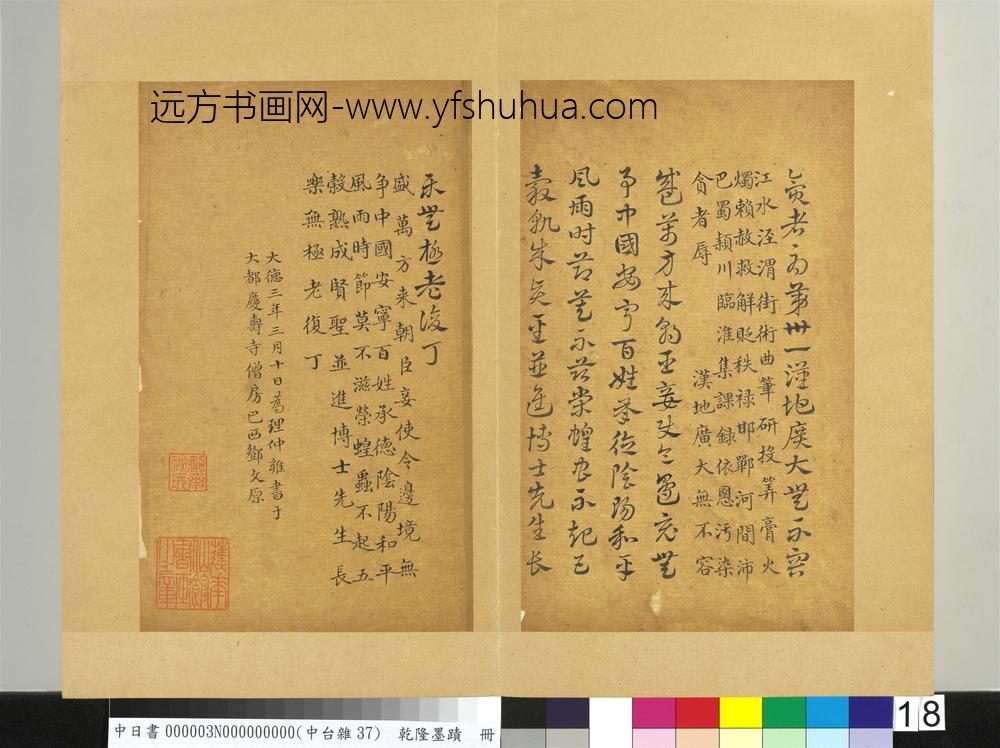 远方书画网-www.yfshuhua.com
貪者為第卅一漢地廣大無不容
江水涇渭街術曲筆研投筭膏火
燭賴赦救解貶秩禄邯鄲河間沛
巴蜀潁川臨淮集課録依恩汚染
貪者辱 漢地廣大無不容
盛萬方来朝臣妾使令邊境無
争中國安寧百姓承德陰陽和平
風雨時節莫不滋榮蝗蟲不起五
穀孰成賢聖並進博士先生長
樂無極老復丁
盛萬方来朝臣妾使令邊境無
争中國安寧百姓承德陰陽和平
風雨時節莫不滋榮蝗蟲不起五
穀熟成賢聖並進博士先生長
樂無極老復丁
大德三年三月十日為理仲雍書于
大都慶壽寺僧房巴西鄧文原
18
中日書000003N000000000(中台雜37) 乾隆墨蹟 冊